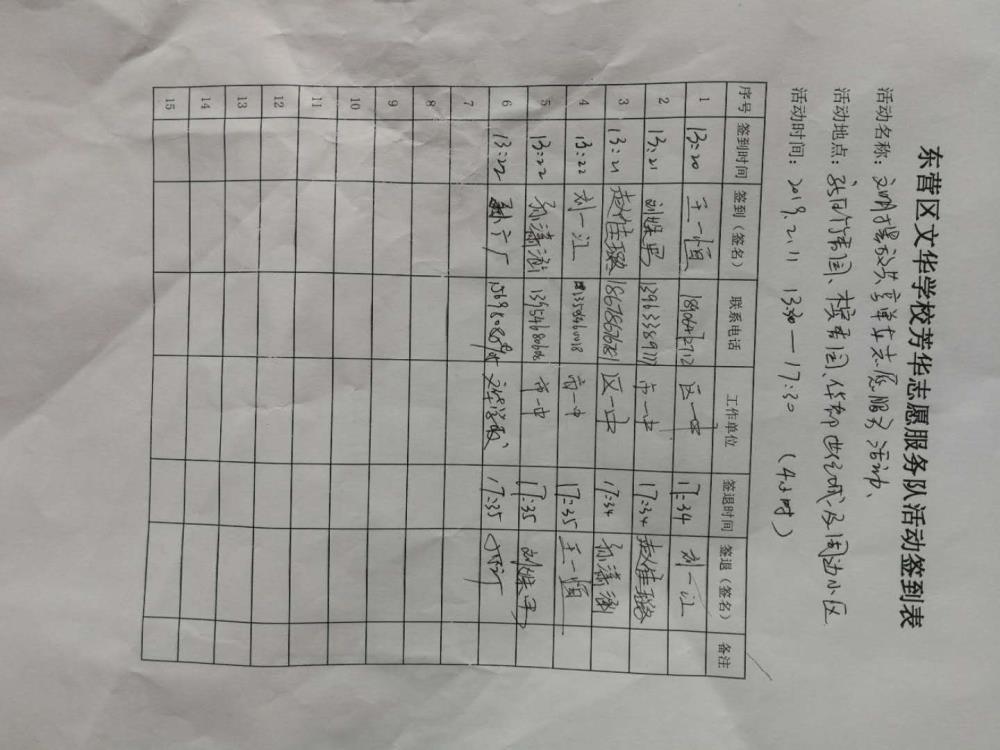 东营区文华学校芳华志愿服务队活动签到表
活动名称：文明摆放共享单车志愿服务活动、
活动地点：香园、香园、城及周边小区
活动时间：2019.2.11 13:30—17:30 （4小时）
序号 签到时间 签到（签名） 联系电话 工作单位 签退时间 签退（签名） 备注
1 13:20 王一恒 区一中 17:34 刘一江
2 13:21 刘姝男 市一中 17:34 赵佳璐
3 13:21 赵佳璐 18678676781 区一中 17:34 孙潇渊
4 13:22 刘一江 市一中 17:35 王一恒
5 13:22 孙潇渊 市一中 17:35 刘姝男
6 13:22 文华学校 17:35
7
8
9
10
11
12
13
14
15